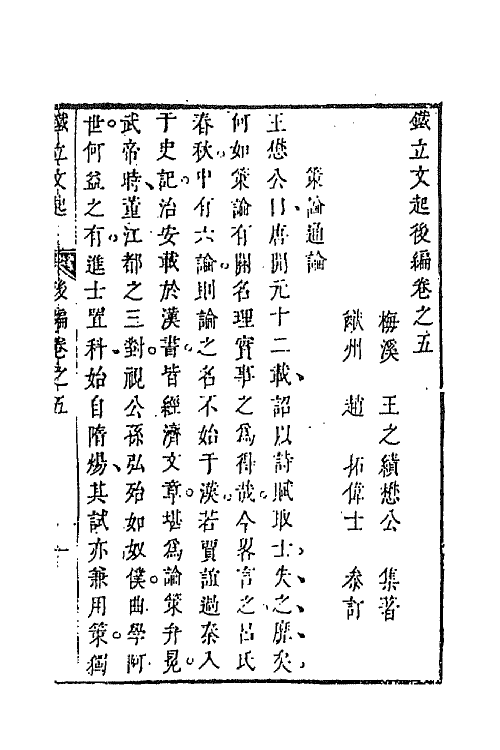 鐵立文起後編卷之五
梅溪 王之績懋公 集著
猷州 趙 拓偉士 叅訂
策論通論
王懋公曰唐開元十二載詔以詩賦取士失之靡矣
何如策論有關名理實事之為得哉今畧言之呂氏
春秋中有六論則論之名不始于漢若賈誼過秦入
于史記治安載於漢書皆經濟文章堪為論策弁冕
武帝時董江都之三對視公孫弘殆如奴僕曲學阿
世何益之有進士置科始自隋煬其試亦兼用策獨
鐵立文起 後編卷之五 一